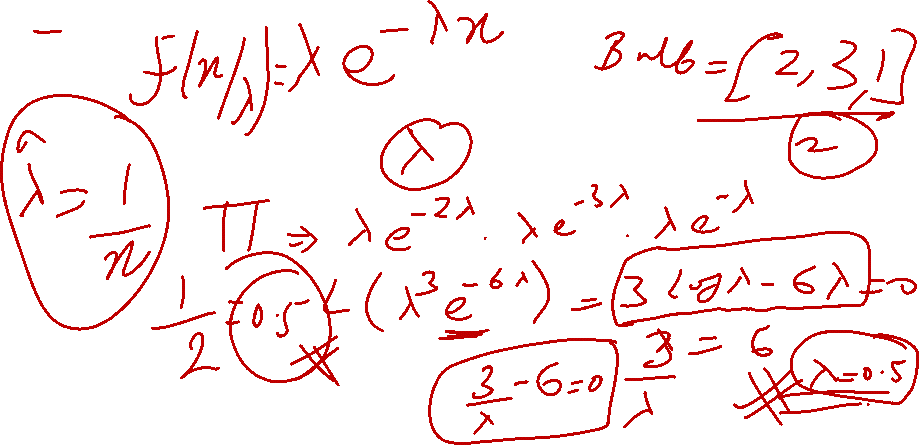 f(x/λ) = λ e^{-λx}
Bulb = [2, 3, 1]
2
λ̂ = 1/x
λ
π ⇒ λe^{-2λ} . λe^{-3λ} . λe^{-λ}
1/2 = 0.5 (λ^3 e^{-6λ}) = 3 log λ - 6λ = 0
3/λ - 6 = 0 3/λ = 6 λ = 0.5